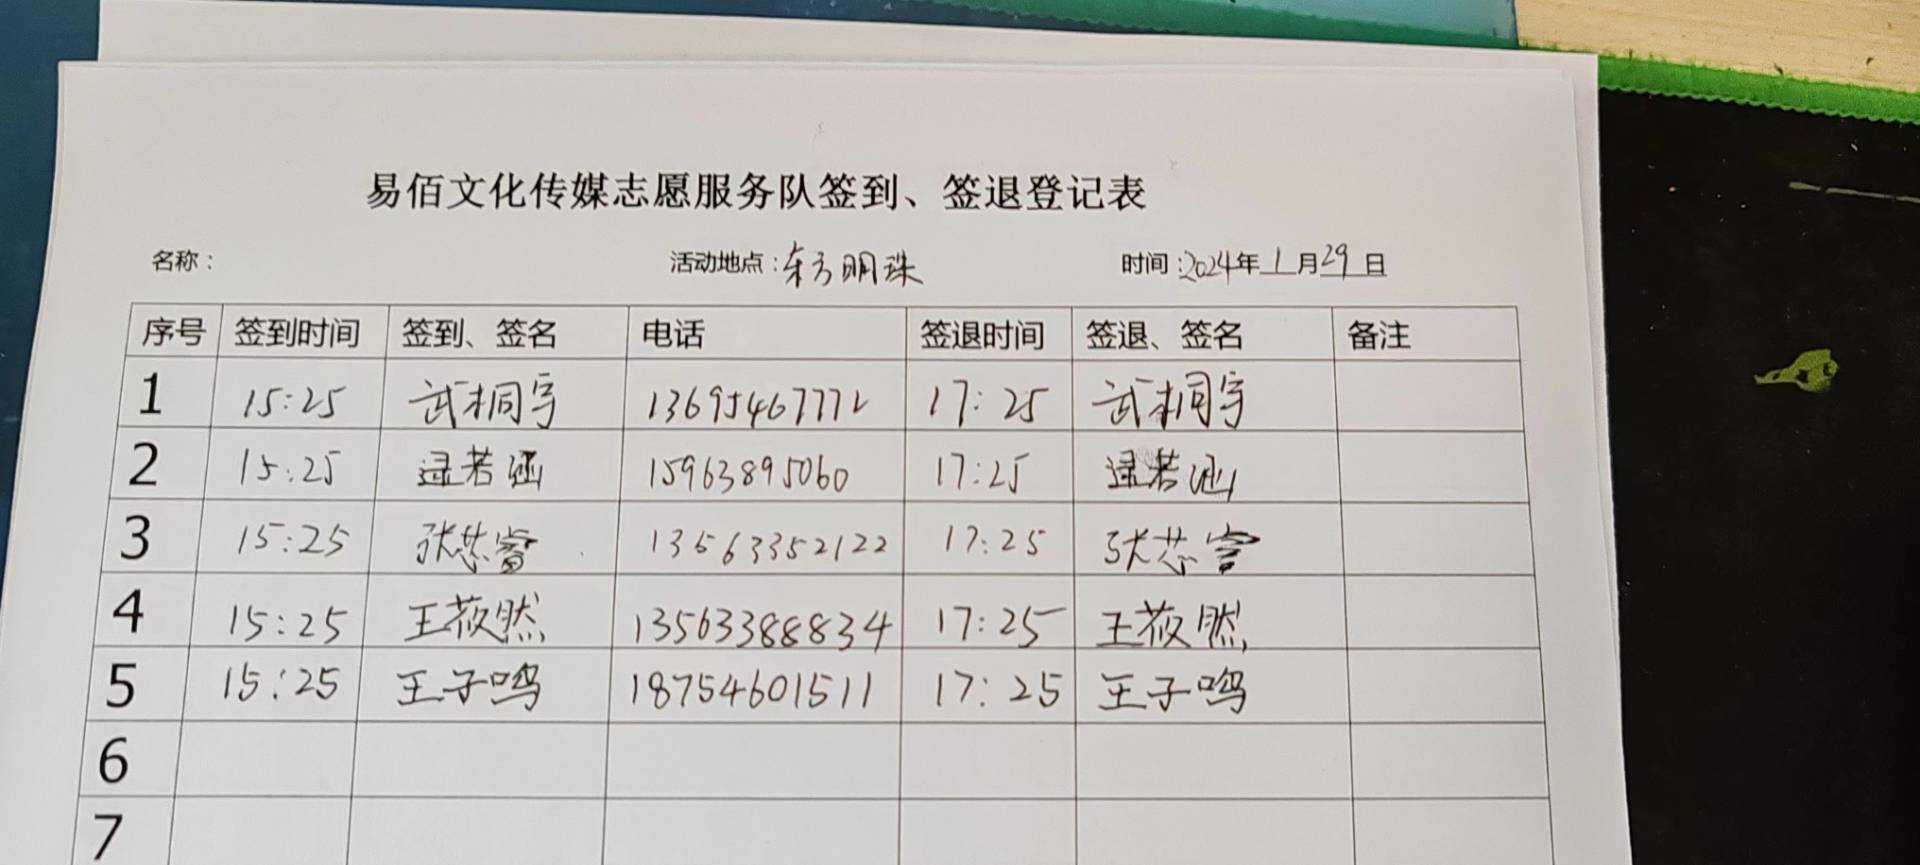 易佰文化传媒志愿服务队签到、签退登记表
名称： 活动地点：东方明珠 时间：2024年1月29日
序号 签到时间 签到、签名 电话 签退时间 签退、签名 备注
1 15:25 武桐宇 13695467772 17:25 武桐宇
2 15:25 逯若涵 15963895060 17:25 逯若涵
3 15:25 张芯睿 13563352122 17:25 张芯睿
4 15:25 王莜然 13563388834 17:25 王莜然
5 15:25 王子鸣 18754601511 17:25 王子鸣
6
7